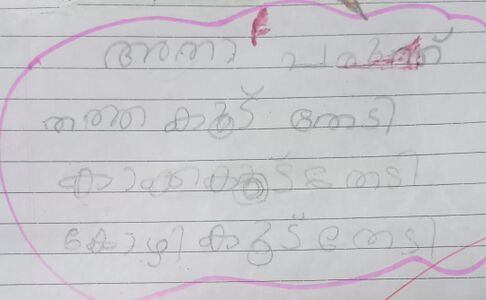 അതാ പരുന്ത്
തത്ത കൂട് തേടി
കാക്ക കൂട് തേടി
കോഴി കൂട് തേടി